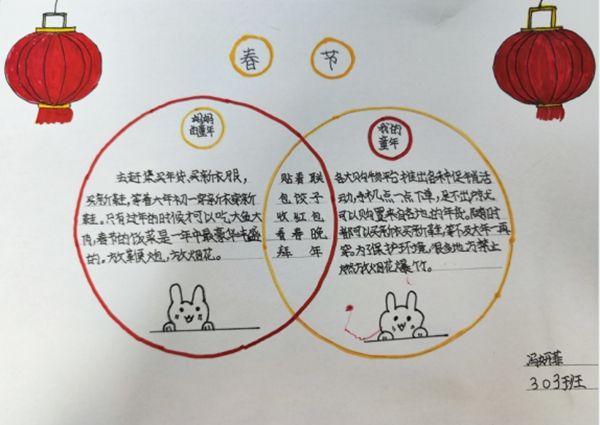 春 节
妈妈
的童年
去赶集买年货、买新衣服,
买新鞋,等着大年初一穿新衣穿新
鞋。只有过年的时候才可以吃大鱼大
肉,春节的饭菜是一年中最豪华丰盛
的。放鞭炮,放烟花。
贴春联
包饺子
收红包
看春晚
拜年
我的
童年
各大购物平台推出各种促年货活
动,手机点一点下单,足不出户就
可以购置来自各地的年货。随时
都可以买新衣买新鞋,等不及大年一再
穿。为保护环境,很多地方禁止
燃放烟花爆竹。
303班